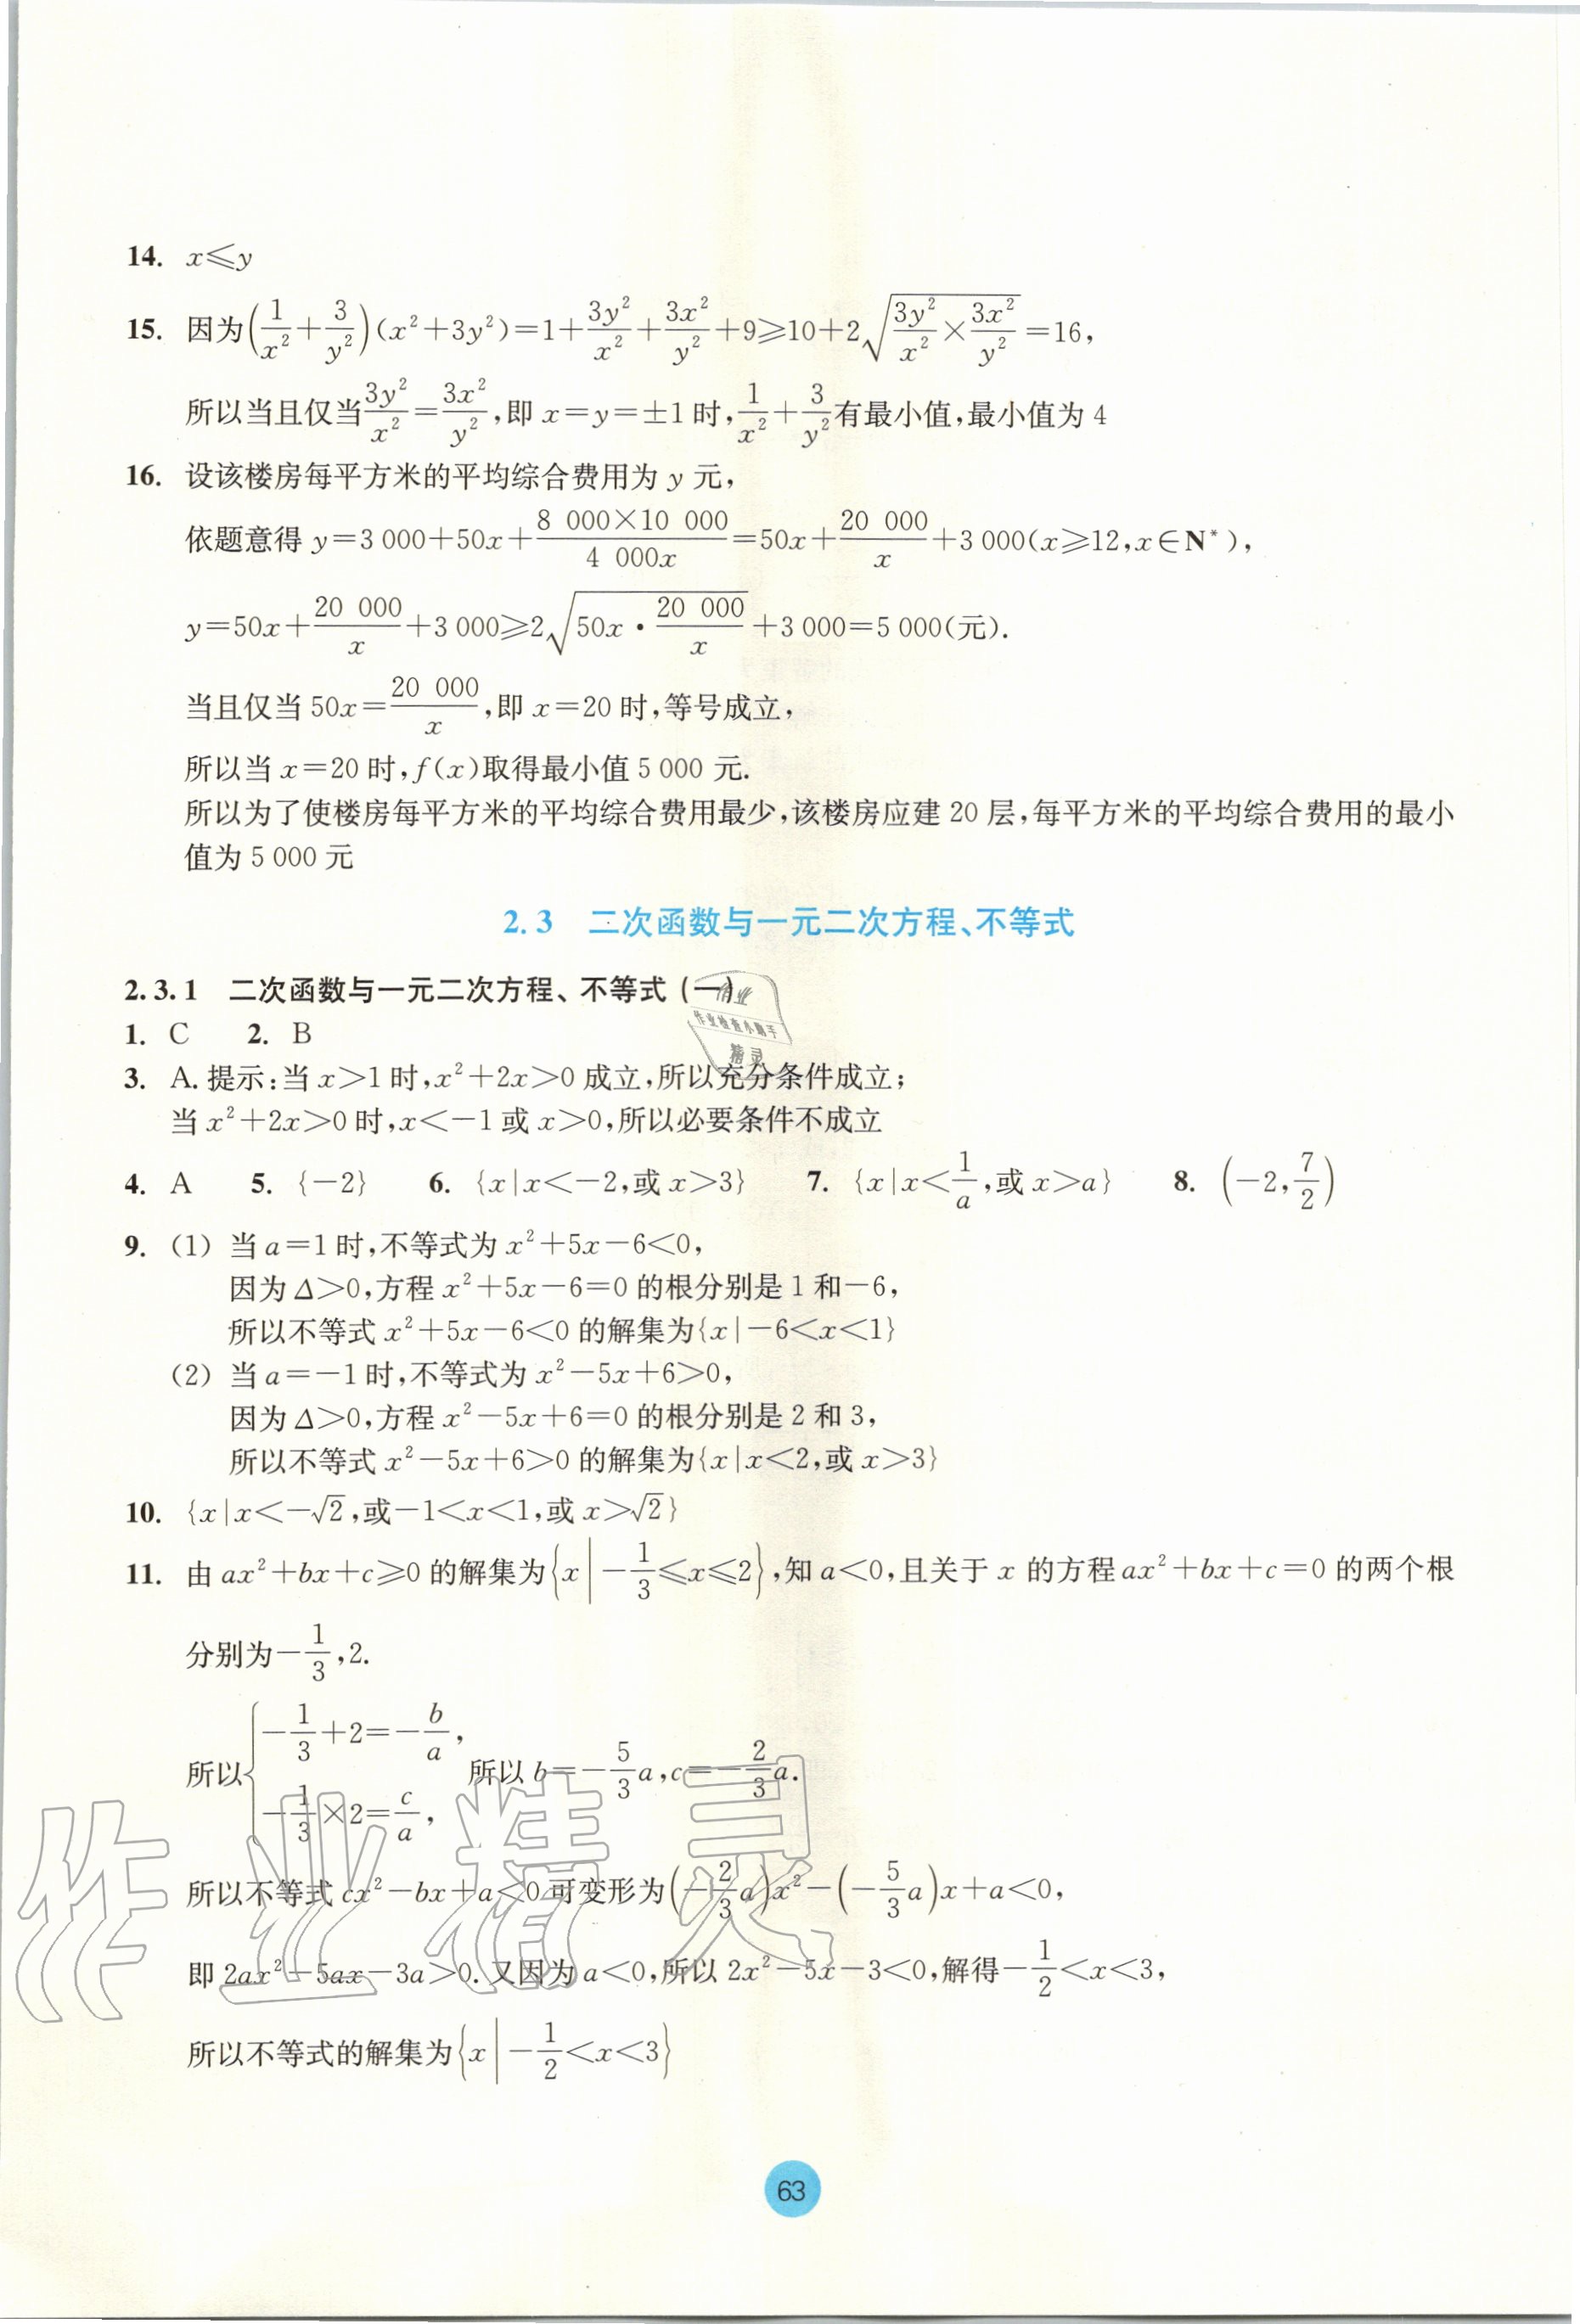 14. x≤y
15. 因为(1/x²+3/y²)(x²+3y²)=1+3y²/x²+3x²/y²+9≥10+2√(3y²/x²×3x²/y²)=16,
所以当且仅当3y²/x²=3x²/y²,即 x=y=±1 时,1/x²+3/y²有最小值,最小值为 4
16. 设该楼房每平方米的平均综合费用为 y 元,
依题意得 y=3 000+50x+(8 000×10 000)/(4 000x)=50x+20 000/x+3 000(x≥12,x∈N*),
y=50x+20 000/x+3 000≥2√(50x·20 000/x)+3 000=5 000(元).
当且仅当 50x=20 000/x,即 x=20 时,等号成立,
所以当 x=20 时,f(x)取得最小值 5 000 元.
所以为了使楼房每平方米的平均综合费用最少,该楼房应建 20 层,每平方米的平均综合费用的最小
值为 5 000 元
2.3 二次函数与一元二次方程、不等式
2.3.1 二次函数与一元二次方程、不等式(一)
作业
作业检查小助手
精灵
1. C 2. B
3. A. 提示:当 x>1 时,x²+2x>0 成立,所以充分条件成立;
当 x²+2x>0 时,x<-1 或 x>0,所以必要条件不成立
4. A 5. {-2} 6. {x|x<-2,或 x>3} 7. {x|x<1/a,或 x>a} 8. (-2,7/2)
9. (1) 当 a=1 时,不等式为 x²+5x-6<0,
因为 Δ>0,方程 x²+5x-6=0 的根分别是 1 和-6,
所以不等式 x²+5x-6<0 的解集为{x|-6<x<1}
(2) 当 a=-1 时,不等式为 x²-5x+6>0,
因为 Δ>0,方程 x²-5x+6=0 的根分别是 2 和 3,
所以不等式 x²-5x+6>0 的解集为{x|x<2,或 x>3}
10. {x|x<-√2,或-1<x<1,或 x>√2}
11. 由 ax²+bx+c≥0 的解集为{x|-1/3≤x≤2},知 a<0,且关于 x 的方程 ax²+bx+c=0 的两个根
分别为-1/3,2.
所以{-1/3+2=-b/a, -1/3×2=c/a, 所以 b=-5/3a,c=-2/3a.
所以不等式 cx²-bx+a<0 可变形为(-2/3a)x²-(-5/3a)x+a<0,
即 2ax²-5ax-3a>0. 又因为 a<0,所以 2x²-5x-3<0,解得-1/2<x<3,
所以不等式的解集为{x|-1/2<x<3}
作业精灵
63